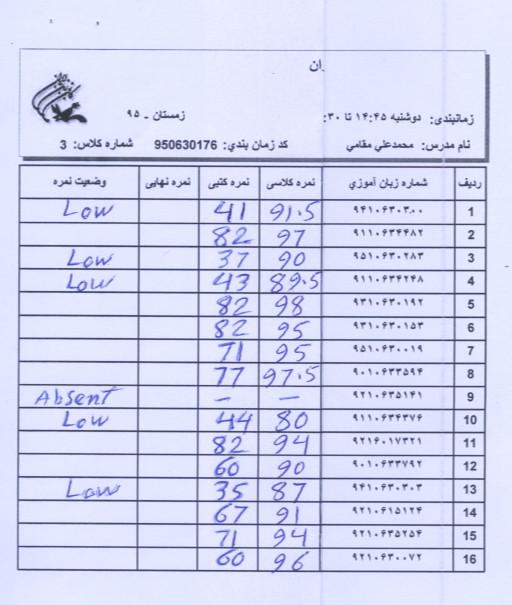 ران
زمستان - ۹۵ زمانبندی: دوشنبه ۱۴:۴۵ تا ۳۰:
نام مدرس: محمدعلي مقامي کد زمان بندي: 950630176 شماره کلاس: 3
ردیف شماره زبان آموزي نمره کلاسی نمره کتبی نمره نهایی وضعیت نمره
1 ۹۴۱۰۶۳۰۳۰۰ 91.5 41 Low
2 ۹۱۱۰۶۳۴۴۸۲ 97 82
3 ۹۵۱۰۶۳۰۲۸۳ 90 37 Low
4 ۹۱۱۰۶۳۴۲۴۸ 89.5 43 Low
5 ۹۳۱۰۶۳۰۱۹۲ 98 82
6 ۹۳۱۰۶۳۰۱۵۳ 95 82
7 ۹۵۱۰۶۳۰۰۱۹ 95 71
8 ۹۰۱۰۶۳۳۵۹۴ 97.5 77
9 ۹۲۱۰۶۳۵۱۴۱ - - Absent
10 ۹۱۱۰۶۳۴۳۷۶ 80 44 Low
11 ۹۲۱۶۰۱۷۳۲۱ 94 82
12 ۹۰۱۰۶۳۳۷۹۲ 90 60
13 ۹۴۱۰۶۳۰۳۰۳ 87 35 Low
14 ۹۲۱۰۶۱۵۱۲۴ 91 67
15 ۹۲۱۰۶۳۵۲۵۴ 94 71
16 ۹۲۱۰۶۳۰۰۷۲ 96 60